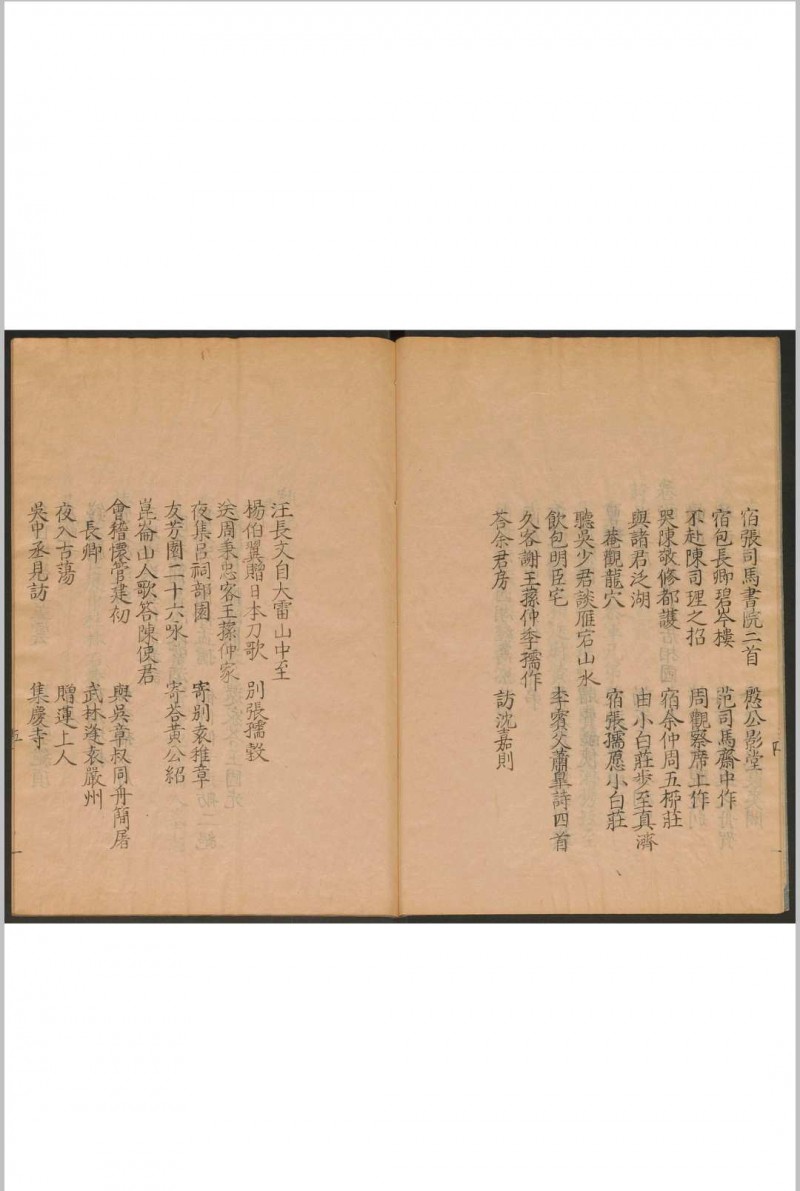 宿張司馬書院二首 愍公影堂
宿包長卿碧岑樓 范司馬齋中作
不赴陳司理之招 周觀察席上作
哭陳敬修都護 宿余仲周五柳莊
與諸君泛湖 由小白莊步至真濟
菴觀龍穴 宿張孺愿小白莊
聽吳少君談雁宕山水
飲包明臣宅 李賓父蕭皐詩四首
久客謝王蓀仲季孺作
答余君房 訪沈嘉則
汪長文自大雷山中至
楊伯翼贈日本刀歌 別張孺穀
送周秉忠客王蓀仲家
夜集呂祠部園 寄別袁稚章
友芳園二十六咏 寄答黃公紹
崑崙山人歌答陳使君
會稽懷管建初 與吳章叔同舟簡屠
長卿 武林逢袁嚴州
夜入古蕩 贈蓮上人
吳中丞見訪 集慶寺